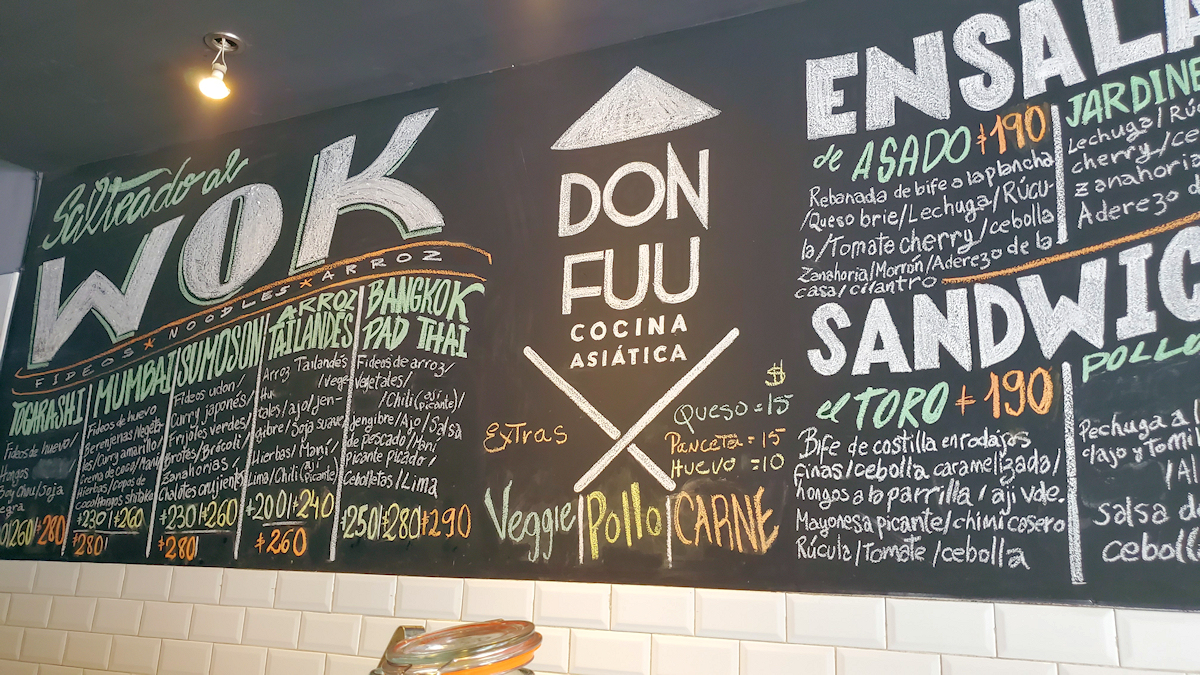 Salteado al
WOK
FIDEOS * NOODLES * ARROZ
TOGARASHI
Fideos de huevo/
Hongos
Soja
260 280
MUMBAI
Fideos de huevo
Berenjenas/Vegeta-
les/Curry amarillo
Crema de coco/Maní
Hierbas/copos de
coco/Hongos shitake
230 260
280
SUMOSON
Fideos udon/
Curry japonés/
Frijoles verdes/
Brotes/Brócoli/
Zanahorias/
Chalotes crujientes
230 260
280
ARROZ
TAILANDÉS
Arroz Tailandés
/Vege-
tales/ajo/Jen-
gibre/Soja suave
Hierbas/Maní/
Limo/Chili (ají
picante)
200 240
260
BANGKOK
PAD THAI
Fideos de arroz/
Vegetales/
/Chili (ají
picante)/
Jengibre/Ajo/Salsa
de pescado/Maní
picante picado/
Cebolletas/Lima
250 280 290
DON
FUU
COCINA
ASIÁTICA
$
Extras
Queso = 15
Panceta = 15
Huevo = 10
Veggie Pollo CARNE
ENSALA
de ASADO 190
Rebanada de bife a la plancha
/Queso brie/Lechuga/Rúcu-
la/Tomate cherry/cebolla
Zanahoria/Morrón/Aderezo de la
casa/cilantro
JARDINE
Lechuga/Rú
cherry/ce
zanahoria
Aderezo d
SANDWIC
el TORO 190
Bife de costilla en rodajas
finas/cebolla caramelizada/
hongos a la parrilla/aji vde.
Mayonesa picante/chimi casero
Rúcula/Tomate/cebolla
POLLO
Pechuga a l
ajo y Tomil
/Al
salsa d
cebolla